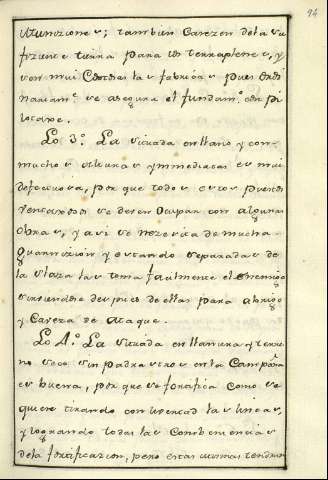 94
situaziones; tambien Carezen de la su
fiziente tierra para los terraplenes, y
son mui Costosas las fabricas pues ordi
nariam.e se asegura el fundam.to con pi
lotaxe.
Lo 3.o La situada en llano y con
muchos y inmediatas es mui
defectuosa, por que todos estos puestos
se deven Ocupar con algunas
obras, y asi se nezesita de mucha
guarnizion y estando separadas de
la Plaza las toma facilmente el enemigo
sirviendose despues de ellas para abrigo
y Caveza de ataque.
Lo 4.o La situada en llanura y terre
no seco sin padrastros en la Campaña
es buena, por que se fortifica como se
quiere tirando con livertad las lineas,
y logrando todas las Combeniencias
de la fortificazion, pero estas mismas tendran